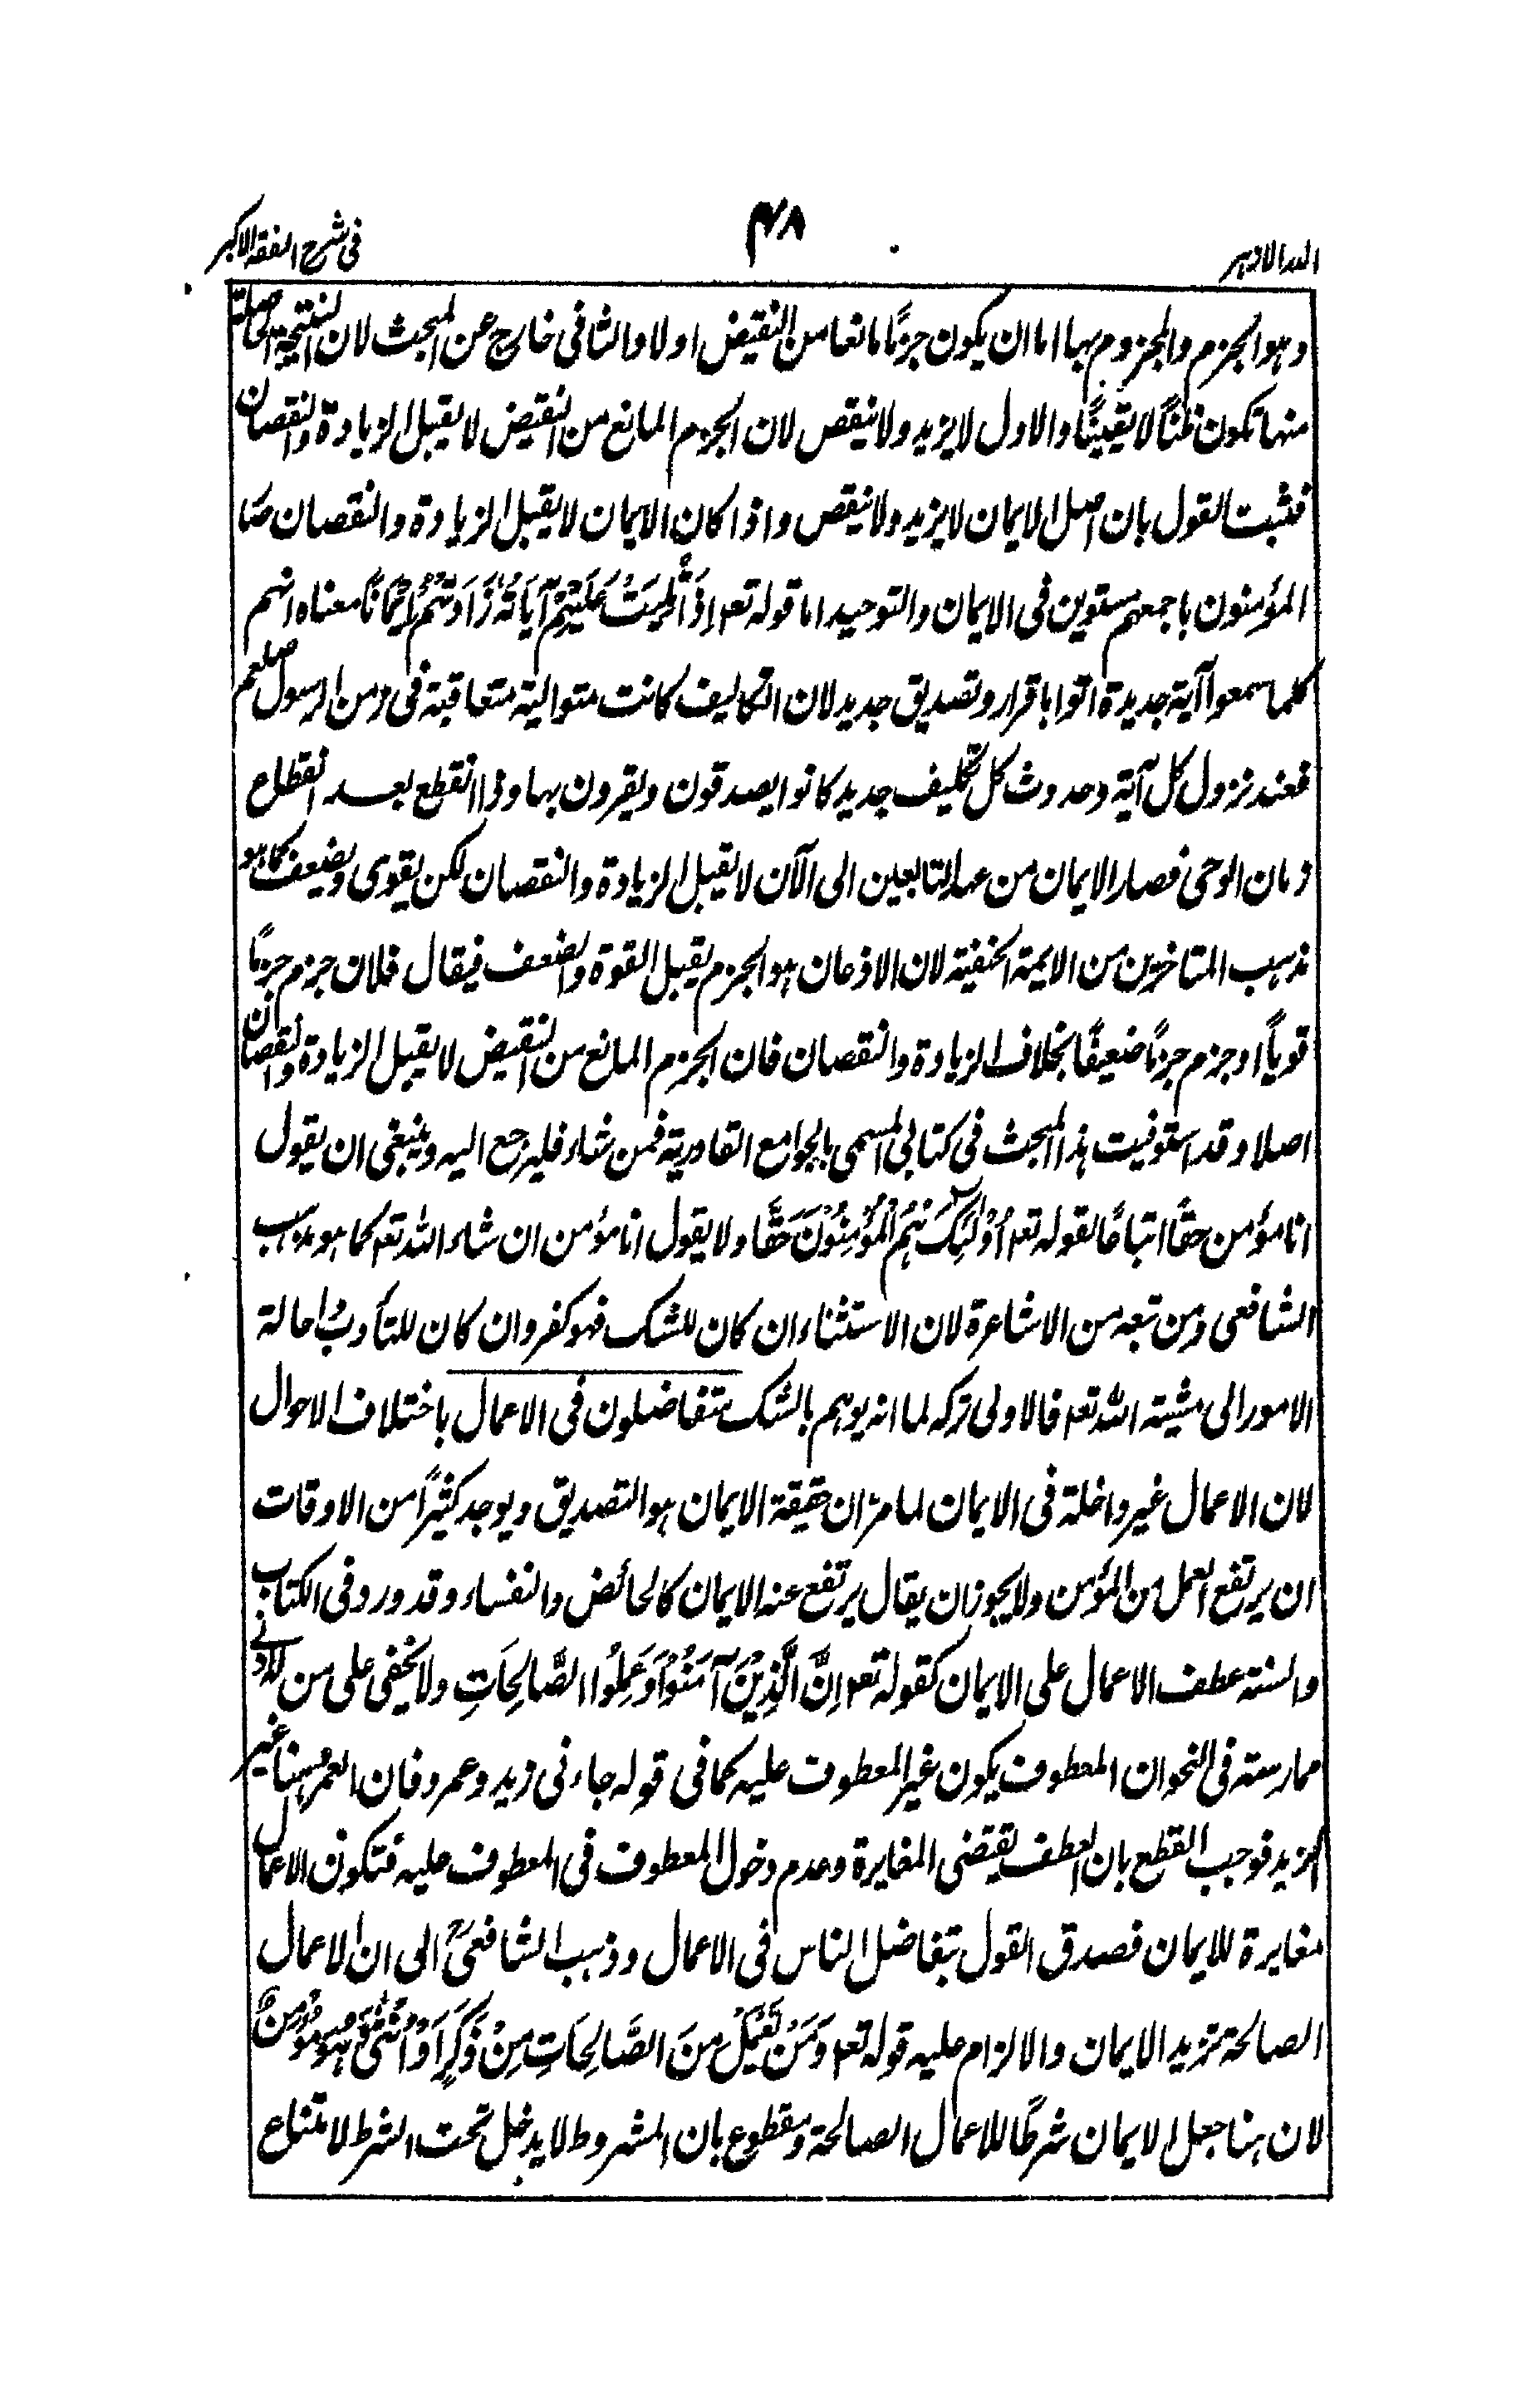 الدر الازهر
۴۸
فی شرح الفقه الاکبر
وهو الجزم والمجزوم بها اما ان یکون جزمًا مانعا من النقیض اولا والثانی خارج عن المبحث لان النتیجة الحاصلة
منها تکون ظنًا لا یقینًا والاول لا یزید ولا ینقص لان الجزم المانع من النقیض لا یقبل الزیادة والنقصان
فثبت القول بان اصل الایمان لا یزید ولا ینقص واذا کان الایمان لا یقبل الزیادة والنقصان صار
المؤمنون باجمعهم مستوین فی الایمان والتوحید اما قوله تعہ اِذَا تُلِیَتْ عَلَیْهِمْ آیَاتُهٗ زَادَتْهُمْ اِیْمَانًا معناه انهم
کلما سمعوا آیة جدیدة اتوا باقرار وتصدیق جدید لان التکالیف کانت متوالیة متعاقبة فی زمن الرسول صلعم
فعند نزول کل آیة وحدوث کل تکلیف جدید کانوا یصدقون ویقرون بها وذا انقطع بعد انقطاع
زمان الوحی فصار الایمان من عهد التابعین الی الآن لا یقبل الزیادة والنقصان لکن یقوی ویضیعف کما هو
مذهب المتاخرین من الایمة الحنفیة لان الاذعان هو الجزم یقبل القوة والضعف فیقال فلان جزم جزمًا
قویاً او جزم جزمًا ضعیفًا بخلاف الزیادة والنقصان فان الجزم المانع من النقیض لا یقبل الزیادة والنقصان
اصلا وقد استوفیت هذا المبحث فی کتابی المسمی بالجوامع القادریة فمن شاء فلیرجع الیه وینبغی ان یقول
انا مؤمن حقًا اتباعًا لقوله تعہ اُوْلٰئِکَ هُمُ الْمُؤْمِنُوْنَ حَقًّا ولا یقول انا مؤمن ان شاء الله تعہ کما هو مذهب
الشافعی ومن تبعه من الاشاعرة لان الاستثناء ان کان للشک فهو کفر وان کان للتأدب واحالة
الامور الی مشیته الله تعہ فالاولی ترکه لما انه یوهم بالشک متفاضلون فی الاعمال باختلاف الاحوال
لان الاعمال غیر داخلة فی الایمان لما مر ان حقیقة الایمان هو التصدیق ویوجد کثیرًا من الاوقات
ان یرتفع العمل من المؤمن ولا یجوز ان یقال یرتفع عنه الایمان کالحائض والنفساء وقد ورد فی الکتاب
والسنة عطف الاعمال علی الایمان کقوله تعہ اِنَّ الَّذِیْنَ آمَنُوْا وَعَمِلُوا الصَّالِحَاتِ ولا یخفی علی من له ادنی
ممارسته فی النحو ان المعطوف یکون غیر المعطوف علیه کما فی قوله جاءنی زید وعمرو فان العمر ههنا غیر
الزید فوجب القطع بان العطف یقتضی المغایرة وعدم دخول المعطوف فی المعطوف علیه فتکون الاعمال
مغایرة للایمان فصدق القول بتفاضل الناس فی الاعمال وذهب الشافعیؒ الی ان الاعمال
الصالحة تزید الایمان والالزام علیه قوله تعہ وَمَنْ یَّعْمَلْ مِنَ الصَّالِحَاتِ مِنْ ذَکَرٍ اَوْ اُنْثٰی وَهُوَ مُؤْمِنٌ
لان هنا جعل الایمان شرطًا للاعمال الصالحة ومقطوع بان المشروط لا یدخل تحت الشرط لامتناع